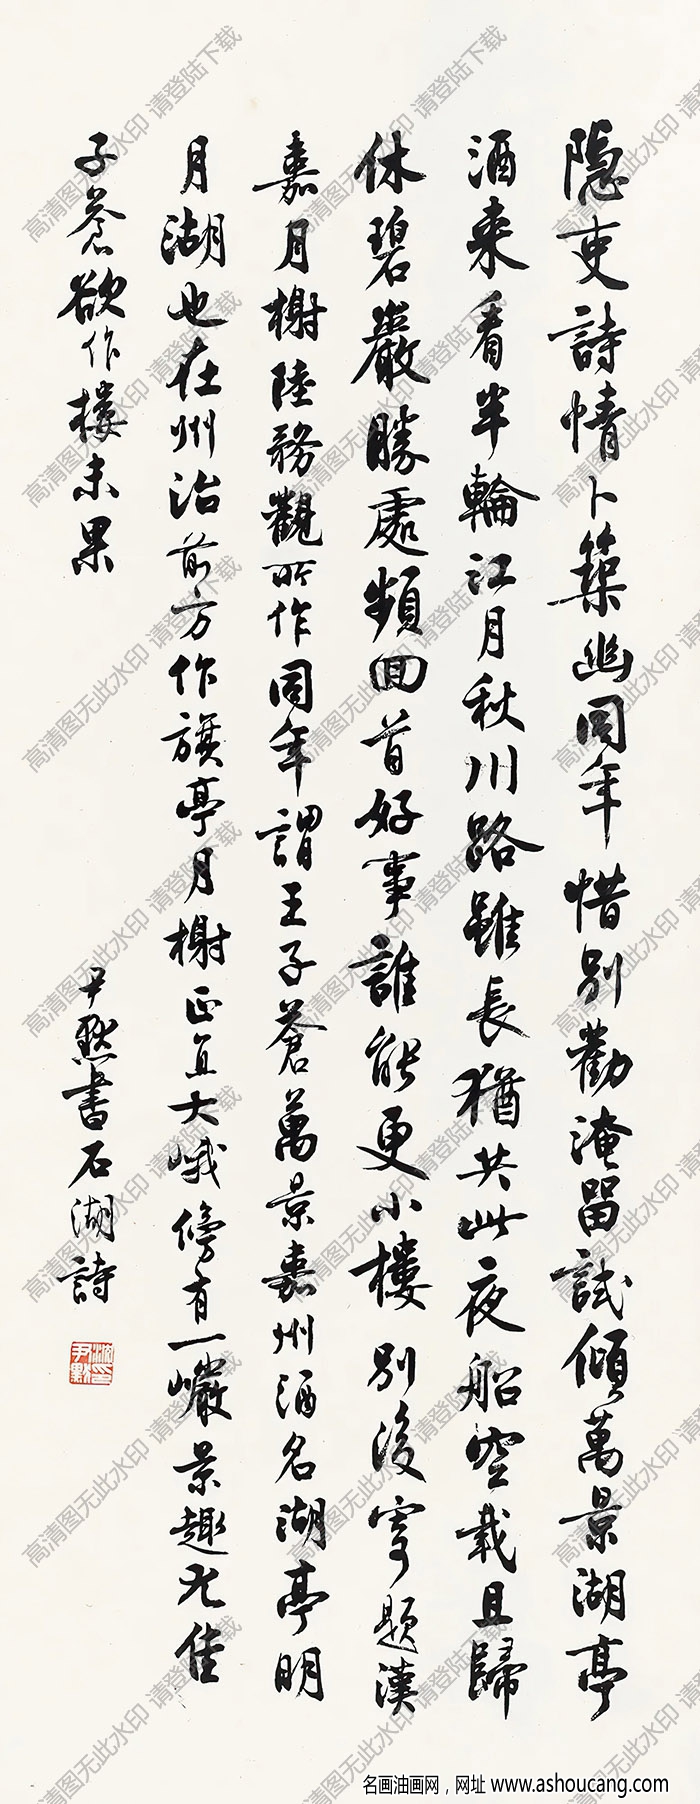 隱吏詩情卜築幽同年惜別勸淹留試傾萬景湖亭
酒來看半輪江月秋川路雖長猶共此夜船空載且歸
休碧巖勝處頻回首好事誰能更小樓 別後寄題漢
嘉月榭陸務觀所作同年謂王子蒼萬景嘉州酒名湖亭明
月湖也在州治前方作旗亭月榭正直大峨傍有一巖景趣尤佳
子蒼欲作樓未果
尹默書石湖詩
沈尹默印
高清图无此水印 请登陆下载
名画油画网，网址 www.ashoucang.com